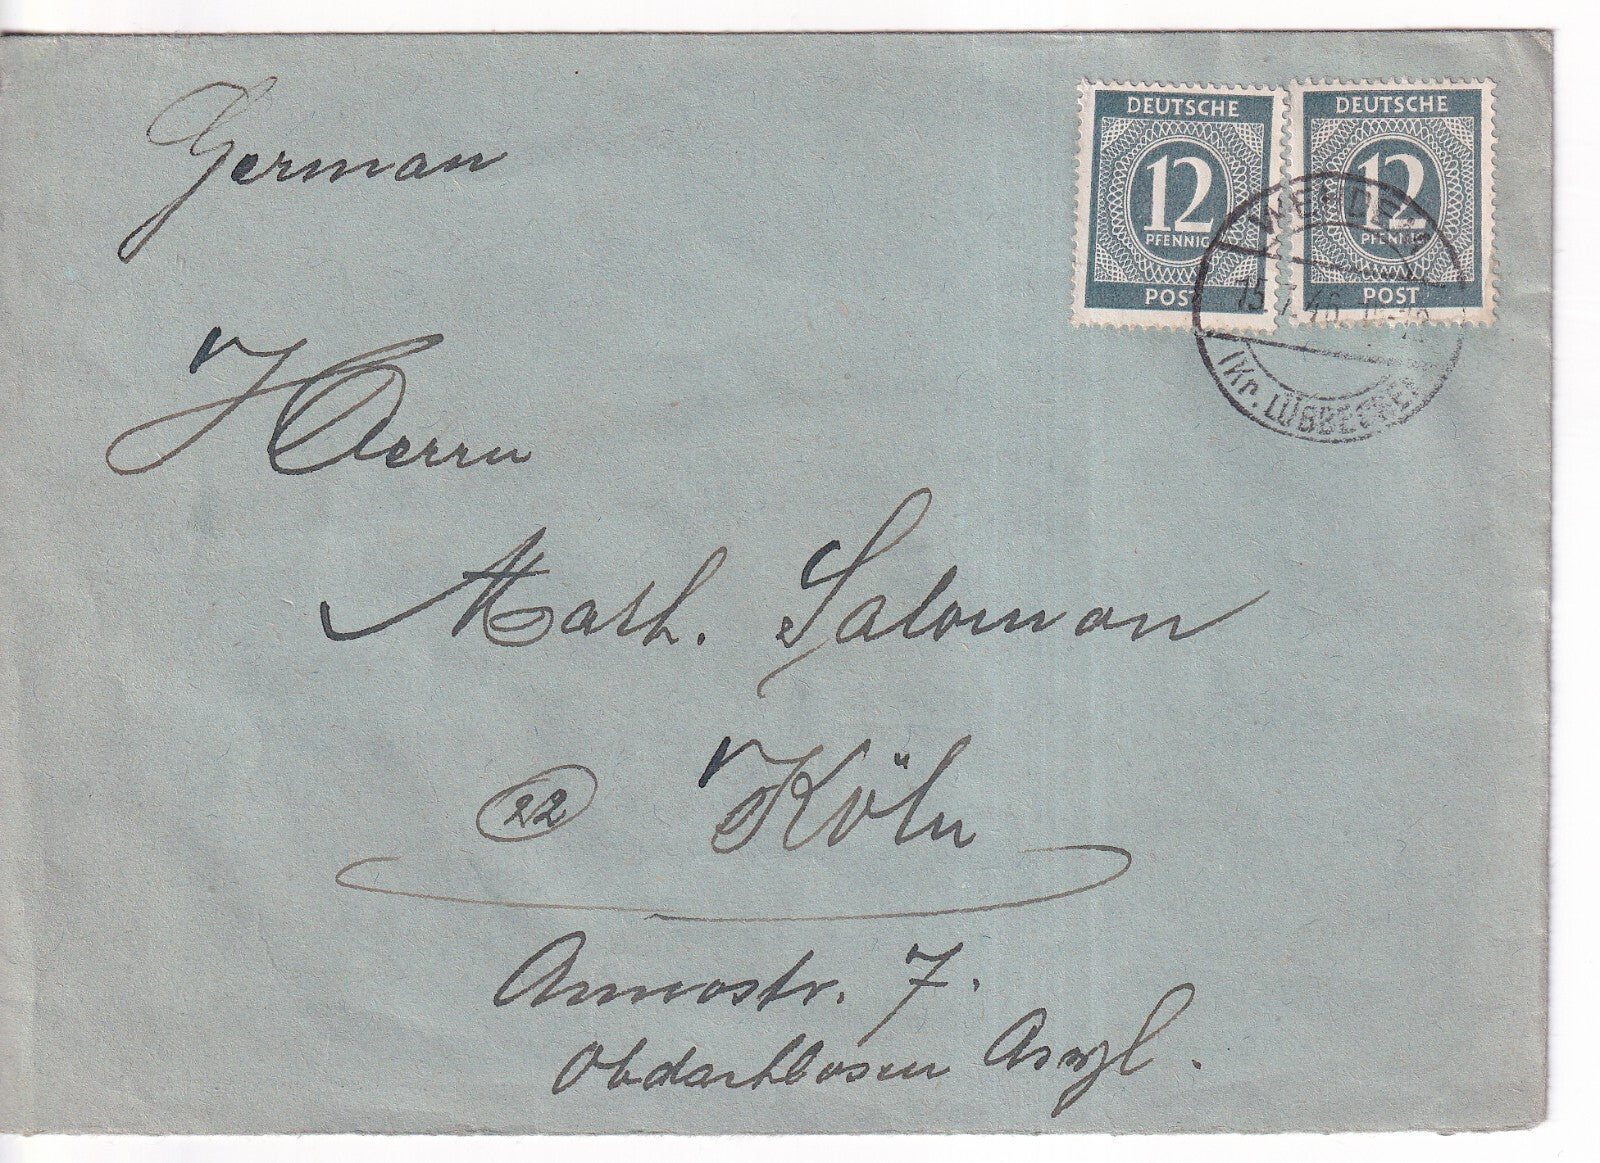 German
DEUTSCHE
12
PFENNIG
POST
DEUTSCHE
12
PFENNIG
POST
15.7.46
(Kr. LÜBBECKE)
Herrn
Math. Salomon
22 Köln
Annostr. 7.
Obdachlosen Asyl.